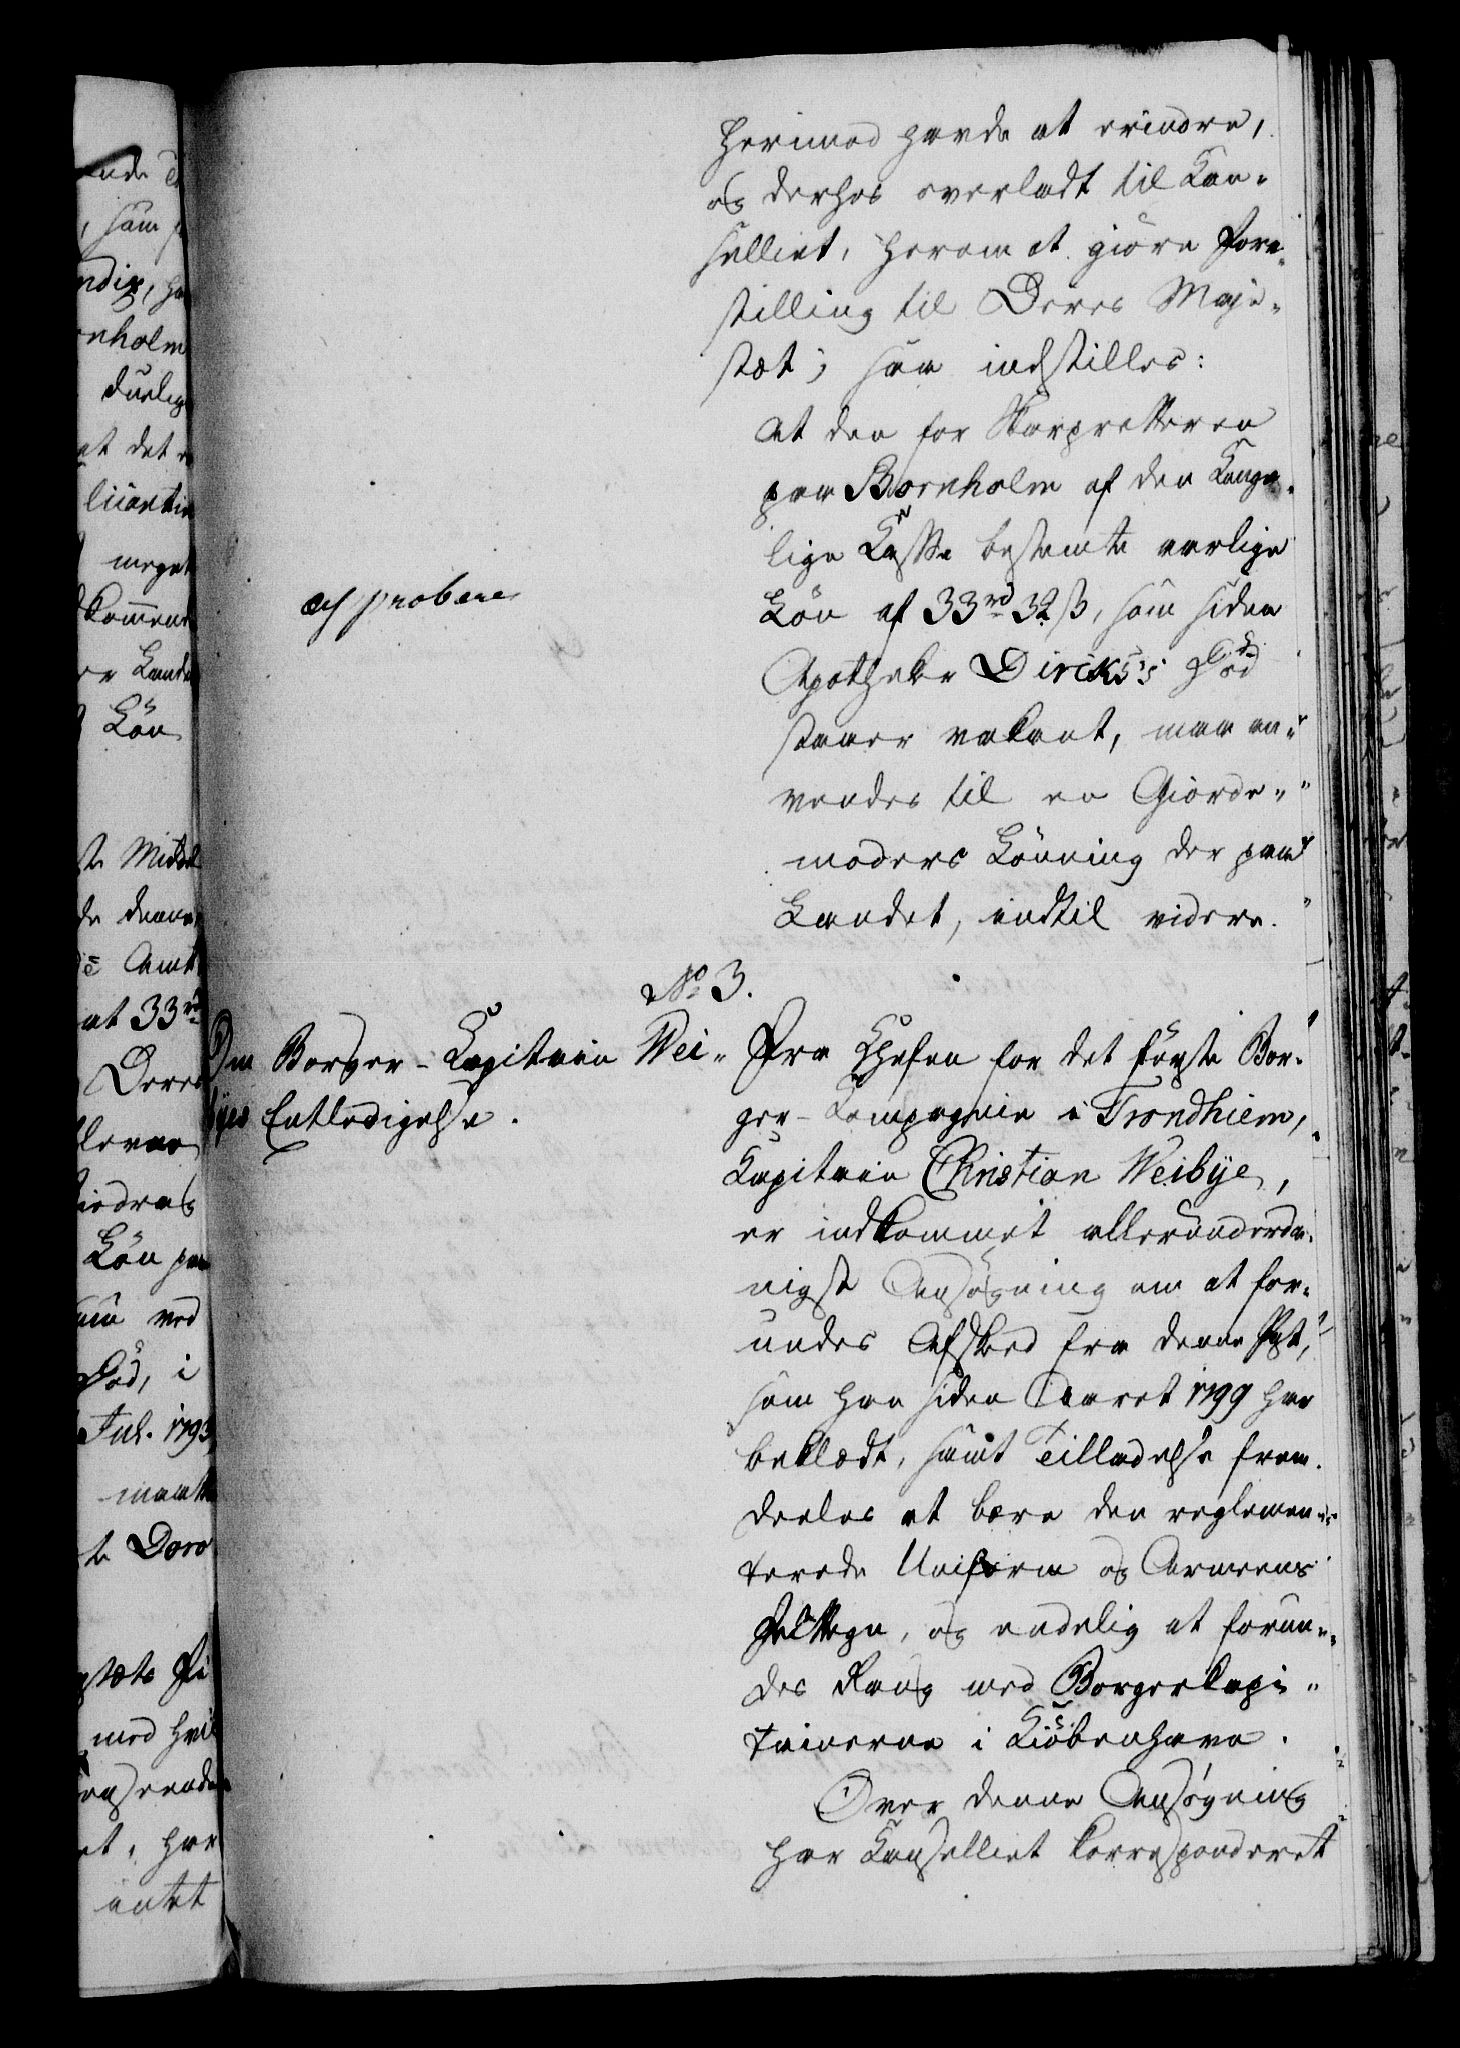 herimod havde at erindre,
og derhos overladt til Kan-
selliet, herom at giöre Fore-
stilling til Deres Maje-
stæt; saa indstilles:
At den for Skarpretteren
paa Bornholm af den Konge-
lige Kasse bestemte aarlige
Lön af 33 rd 32 ß, som siden
Apotheker Dircks's Död
staaer vakant, maa an-
vendes til en Giorde-
moders Lönning der paa
Landet, indtil videre.
approbere
No 3.
Om Borger-Kapitain Wei-
byes Entledigelse.
Fra Chefen for det förste Bor-
ger-Kompagnie i Trondhiem,
Kapitain Christian Weibye,
er indkommet allerunderda-
nigst Ansögning om at for-
undes Afsked fra denne Post,
som han siden Aaret 1799 har
beklædt, samt Tilladelse frem-
deeles at bære den reglemen-
terede Uniform og Armeens
Felttegn, og endelig at forun-
des Rang med Borgerkapi-
tainerne i Kiöbenhavn.
Over denne Ansögning
har Kanselliet korresponderet